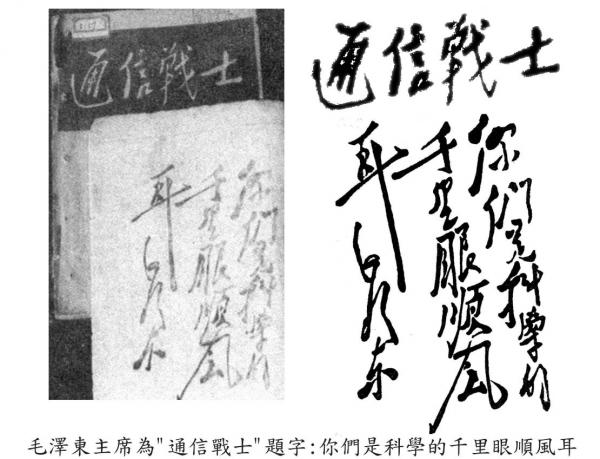 通信戰士
你們是科學的
千里眼順風
耳 毛澤東
通信戰士
你們是科學的
千里眼順風
耳 毛澤東
毛澤東主席為"通信戰士"題字:你們是科學的千里眼順風耳